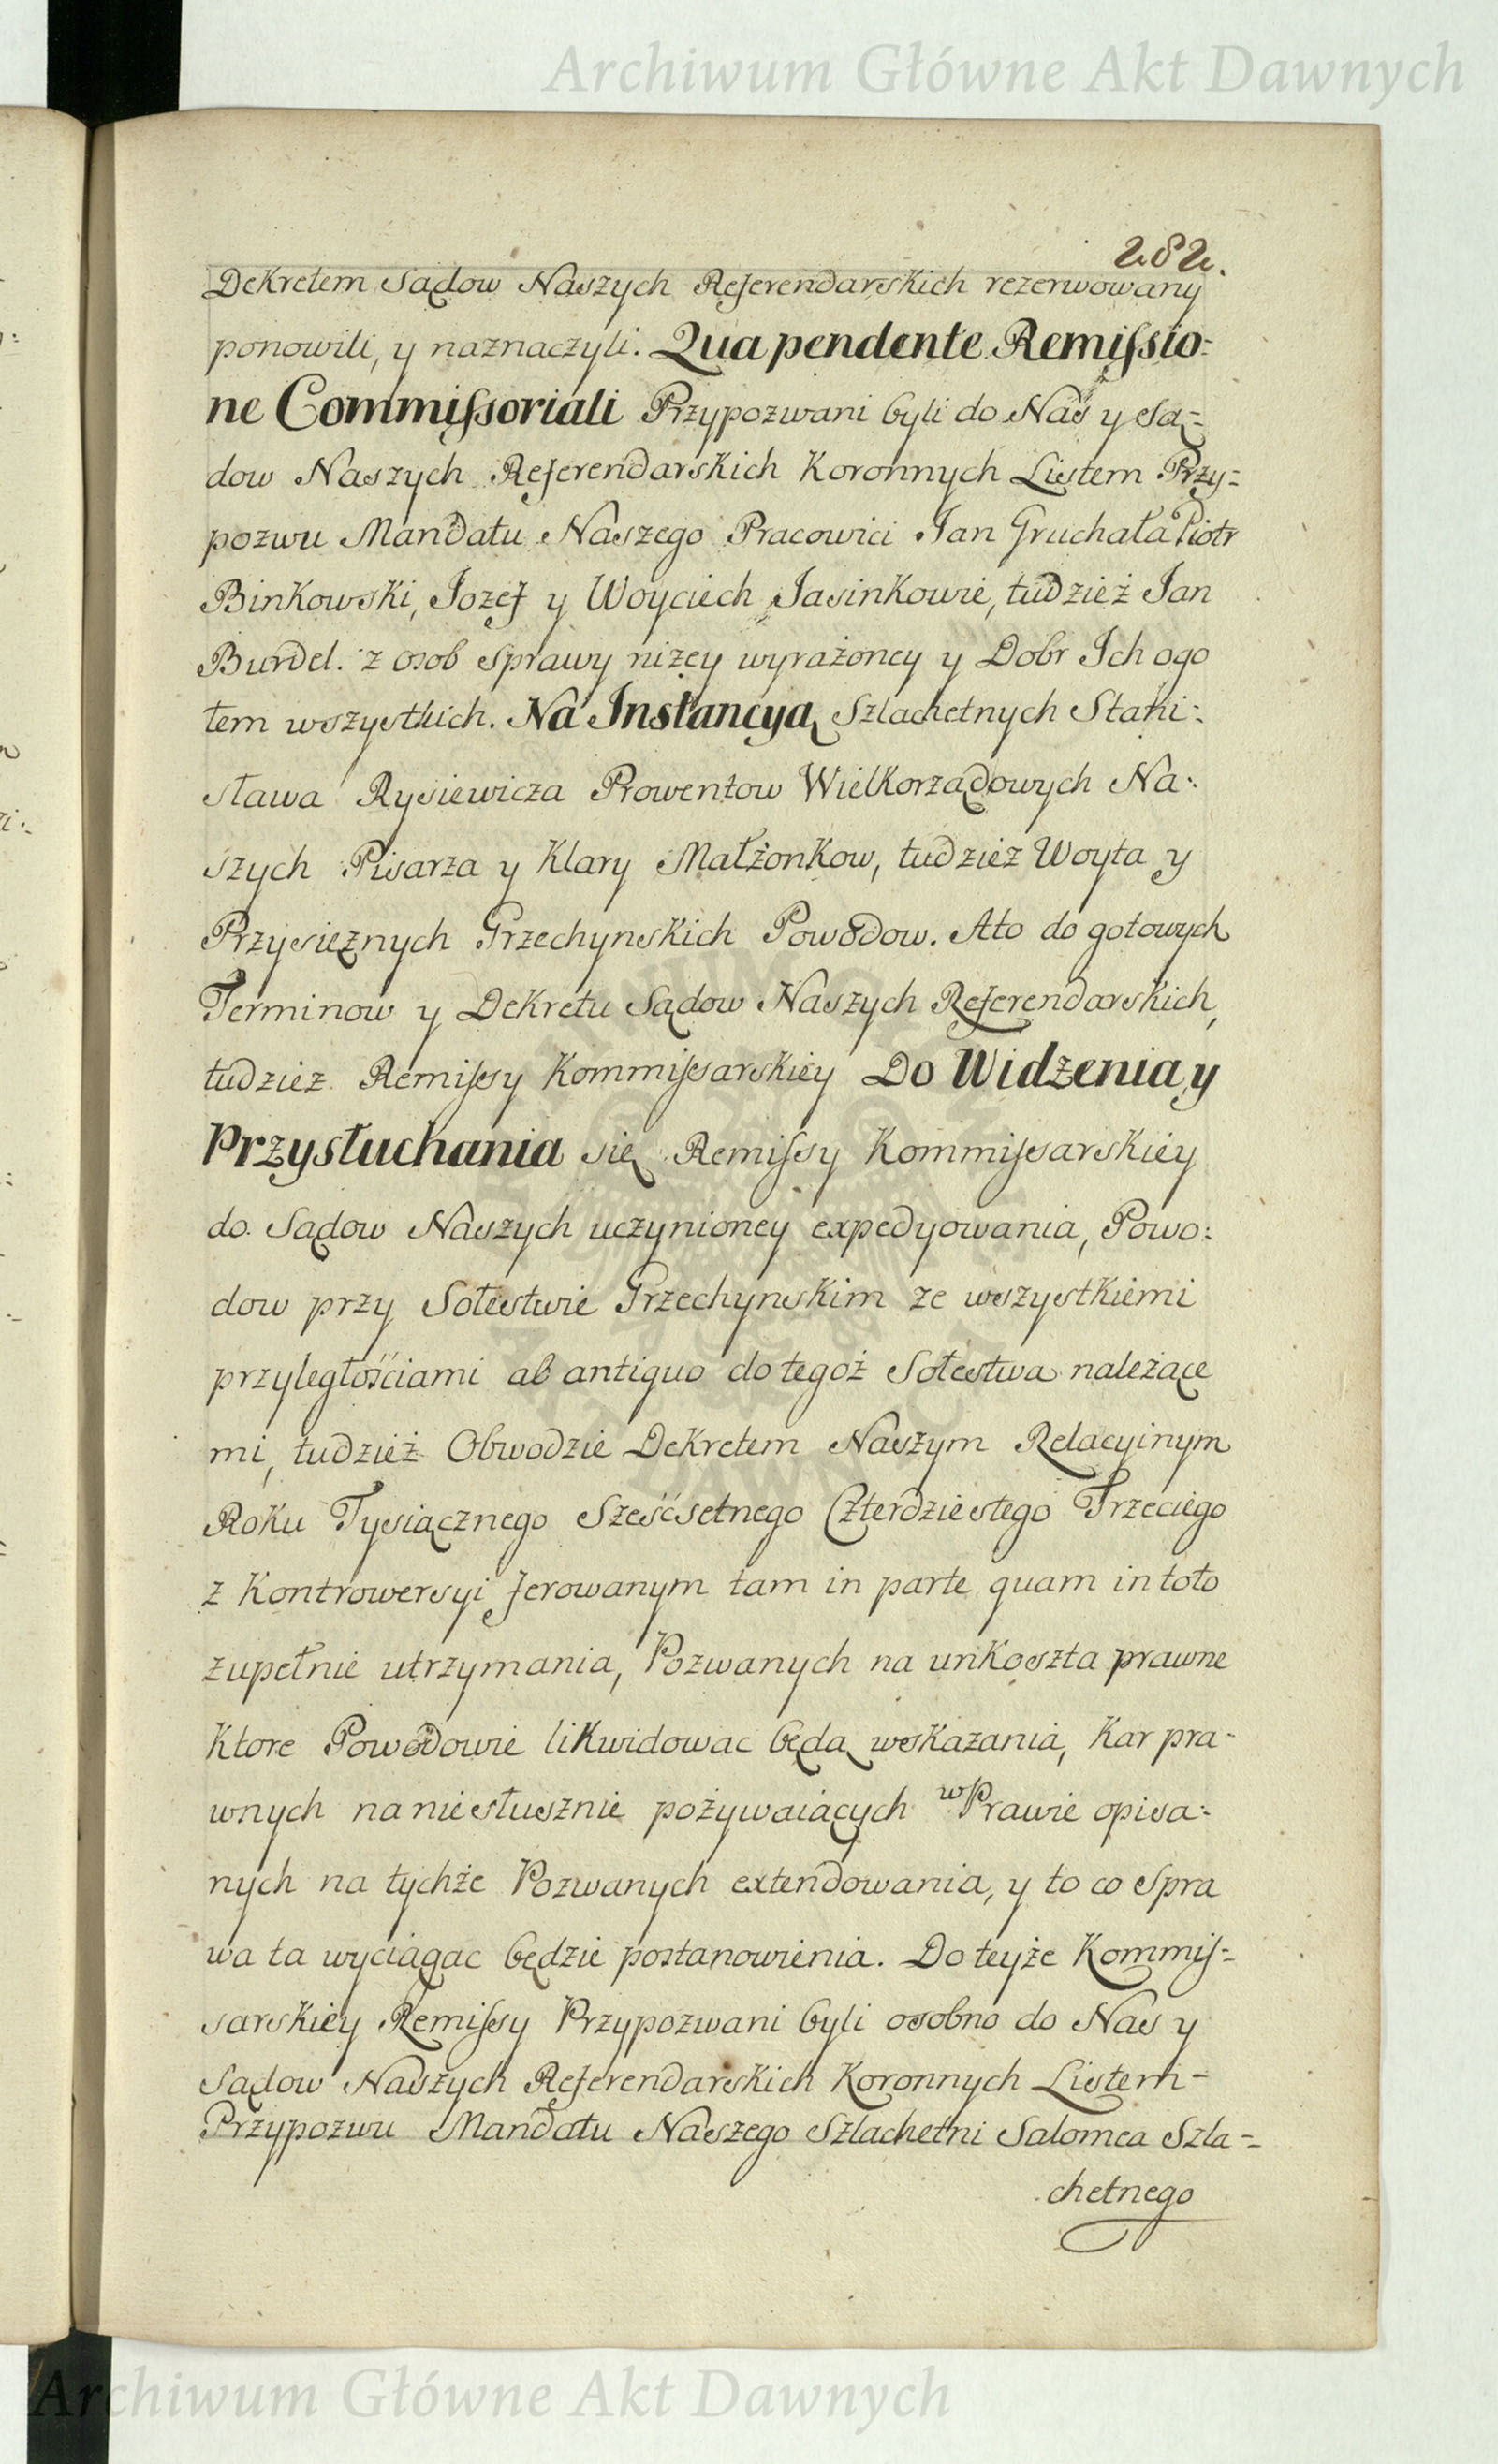 Archiwum Główne Akt Dawnych
282.
Dekretem Sądow Naszych Referendarskich rezerwowany
ponowili, y naznaczyli. Qua pendente Remissio:
ne Commissoriali Przypozwani byli do Nas y Są=
dow Naszych Referendarskich Koronnych Listem Przy=
pozwu Mandatu Naszego Pracowici Jan Gruchała Piotr
Binkowski, Jozef y Woyciech Jasinkowie, tudzież Jan
Burdel. z osob sprawy niżey wyrażoney y Dobr Ich ogo
tem wszystkich. Na Instancyą Szlachetnych Stani:
sława Rysiewicza Prowentow Wielkorządowych Na:
szych Pisarza y Klary Małżonkow, tudzież Woyta y
Przysiężnych Grzechynskich Powodow. Ato do gotowych
Terminow y Dekretu Sądow Naszych Referendarskich,
tudziez Remissy Kommissarskiey Do Widzenia y
Przysłuchania się Remissy Kommissarskiey
do Sądow Naszych uczynioney expedyowania, Powo:
dow przy Sołestwie Grzechynskim ze wszystkiemi
przyległościami ab antiquo do tegoż Sołestwa należące
mi, tudzież Obwodzie Dekretem Naszym Relacyinym
Roku Tysiącznego Sześćsetnego Czterdziestego Trzeciego
z Kontrowersyi ferowanym tam in parte quam in toto
zupełnie utrzymania, Pozwanych na unkoszta prawne
Ktore Powodowie likwidowac będą wskazania, Kar pra-
wnych na niesłusznie pożywaiących w Prawie opisa:
nych na tychże Pozwanych extendowania, y to co Spra
wa ta wyciągac będzie postanowienia. Do teyże Kommis=
sarskiey Remissy Przypozwani byli osobno do Nas y
Sądow Naszych Referendarskich Koronnych Listem-
Przypozwu Mandatu Naszego Szlachetni Salomea Szla=
chetnego
Archiwum Główne Akt Dawnych